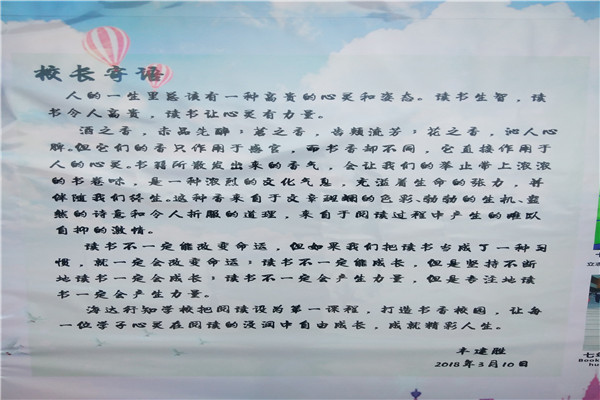 校长寄语
人的一生里总该有一种高贵的心灵和姿态。读书生智，读
书令人高贵，读书让心灵有力量。
酒之香，未品先醉；茗之香，齿颊流芳；花之香，沁人心
脾。但它们的香只作用于感官，而书香却不同，它直接作用于
人的心灵。书籍所散发出来的香气，会让我们的举止带上浓浓
的书卷味，是一种浓烈的文化气息，充溢着生命的张力，并
伴随我们终生。这种香来自于文章斑斓的色彩、勃勃的生机、盎
然的诗意和令人折服的道理，来自于阅读过程中产生的难以
自抑的激情。
读书不一定能改变命运，但如果我们把读书当成了一种习
惯，就一定会改变命运；读书不一定能成长，但是坚持不断
地读书一定会成长；读书不一定会产生力量，但是专注地读
书一定会产生力量。
海达行知学校把阅读设为第一课程，打造书香校园，让每
一位学子心灵在阅读的浸润中自由成长，成就精彩人生。
辛建胜
2018年3月10日
七年
Book
hu